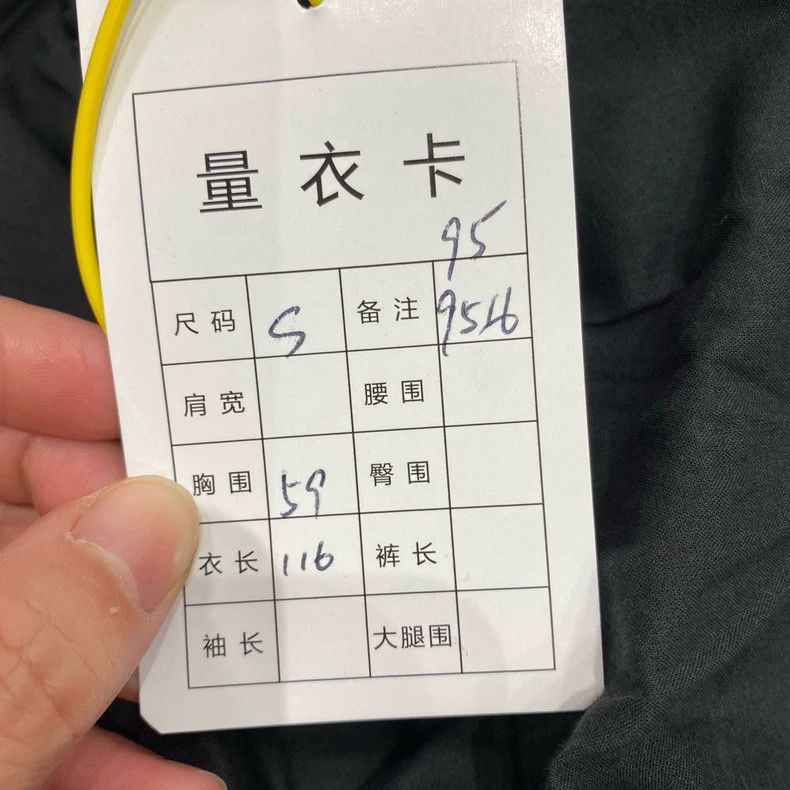 量衣卡
95
尺码 S 备注 9516
肩宽 腰围
胸围 59 臀围
衣长 116 裤长
袖长 大腿围